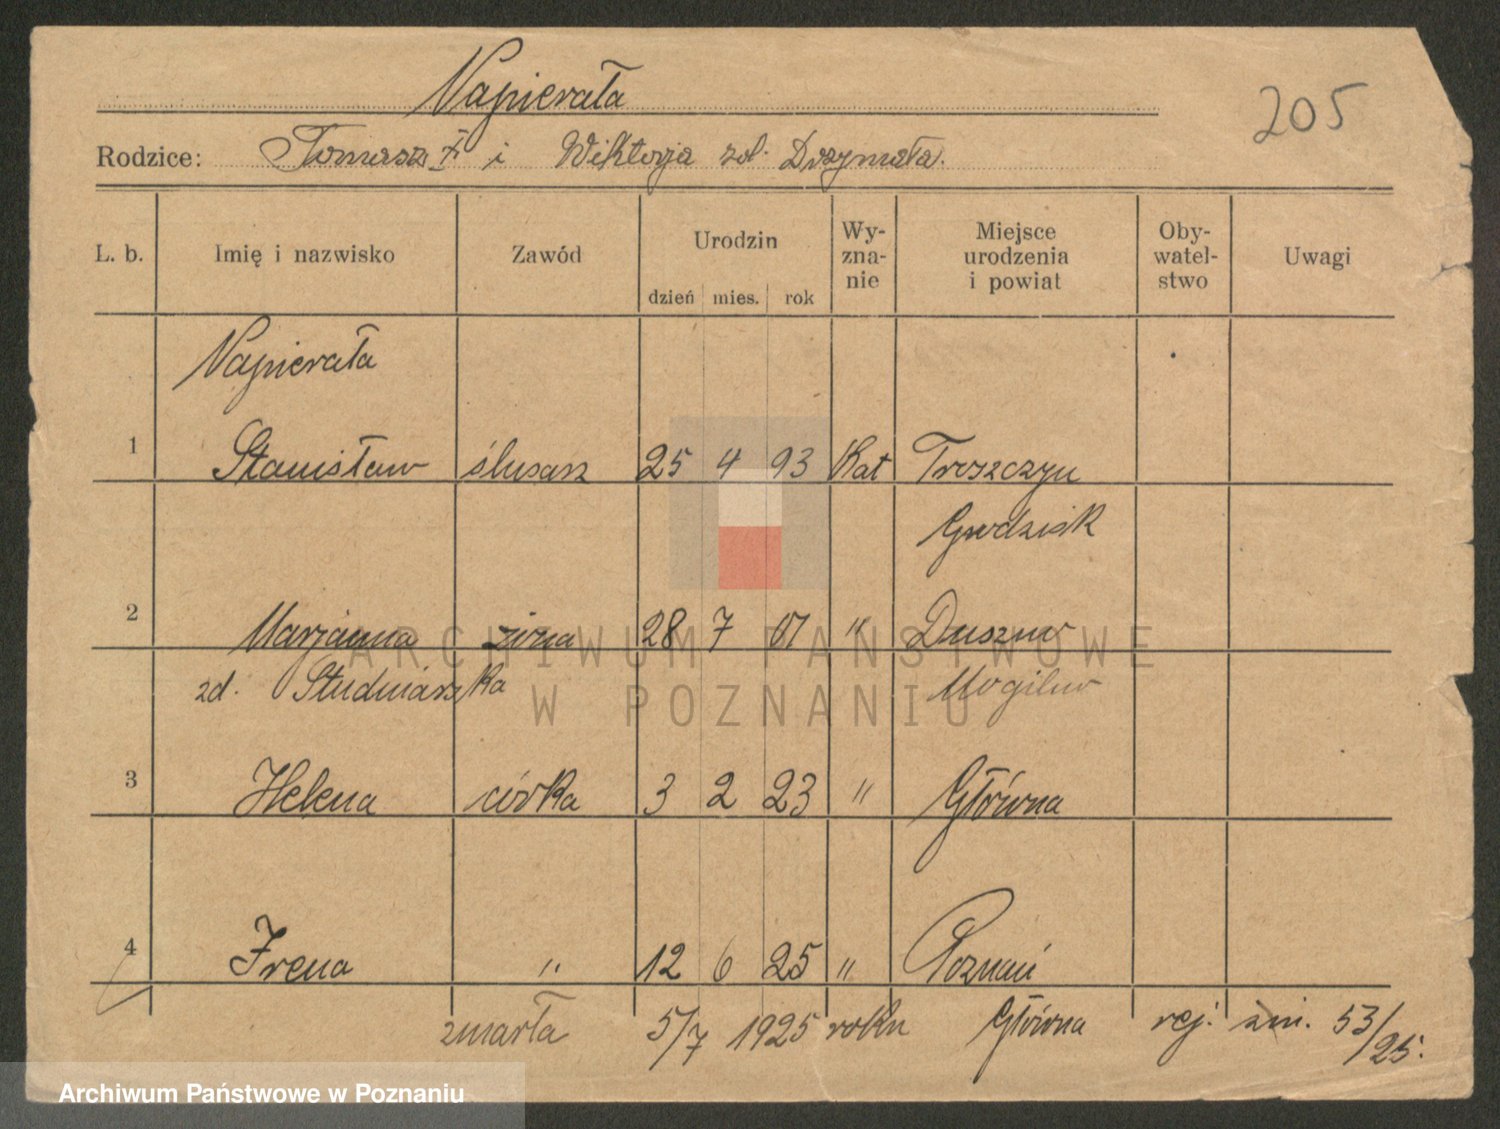 Napierała
205
Rodzice: Tomasz † i Wiktorja zd. Drzymała.
L. b. Imię i nazwisko Zawód Urodzin Wy-zna-nie Miejsce urodzenia i powiat Oby-watel-stwo Uwagi
dzień mies. rok
Napierała
1 Stanisław ślusarz 25 4 93 Kat Troszczyn
Grodzisk
2 Marjanna żona 28 7 01 " Duszno
zd. Studniarska Mogilno
3 Helena córka 3 2 23 " Główna
4 Irena " 12 6 25 " Poznań
zmarła 5/7 1925 roku Główna rej. zm. 53/25.
ARCHIWUM PAŃSTWOWE
W POZNANIU
Archiwum Państwowe w Poznaniu